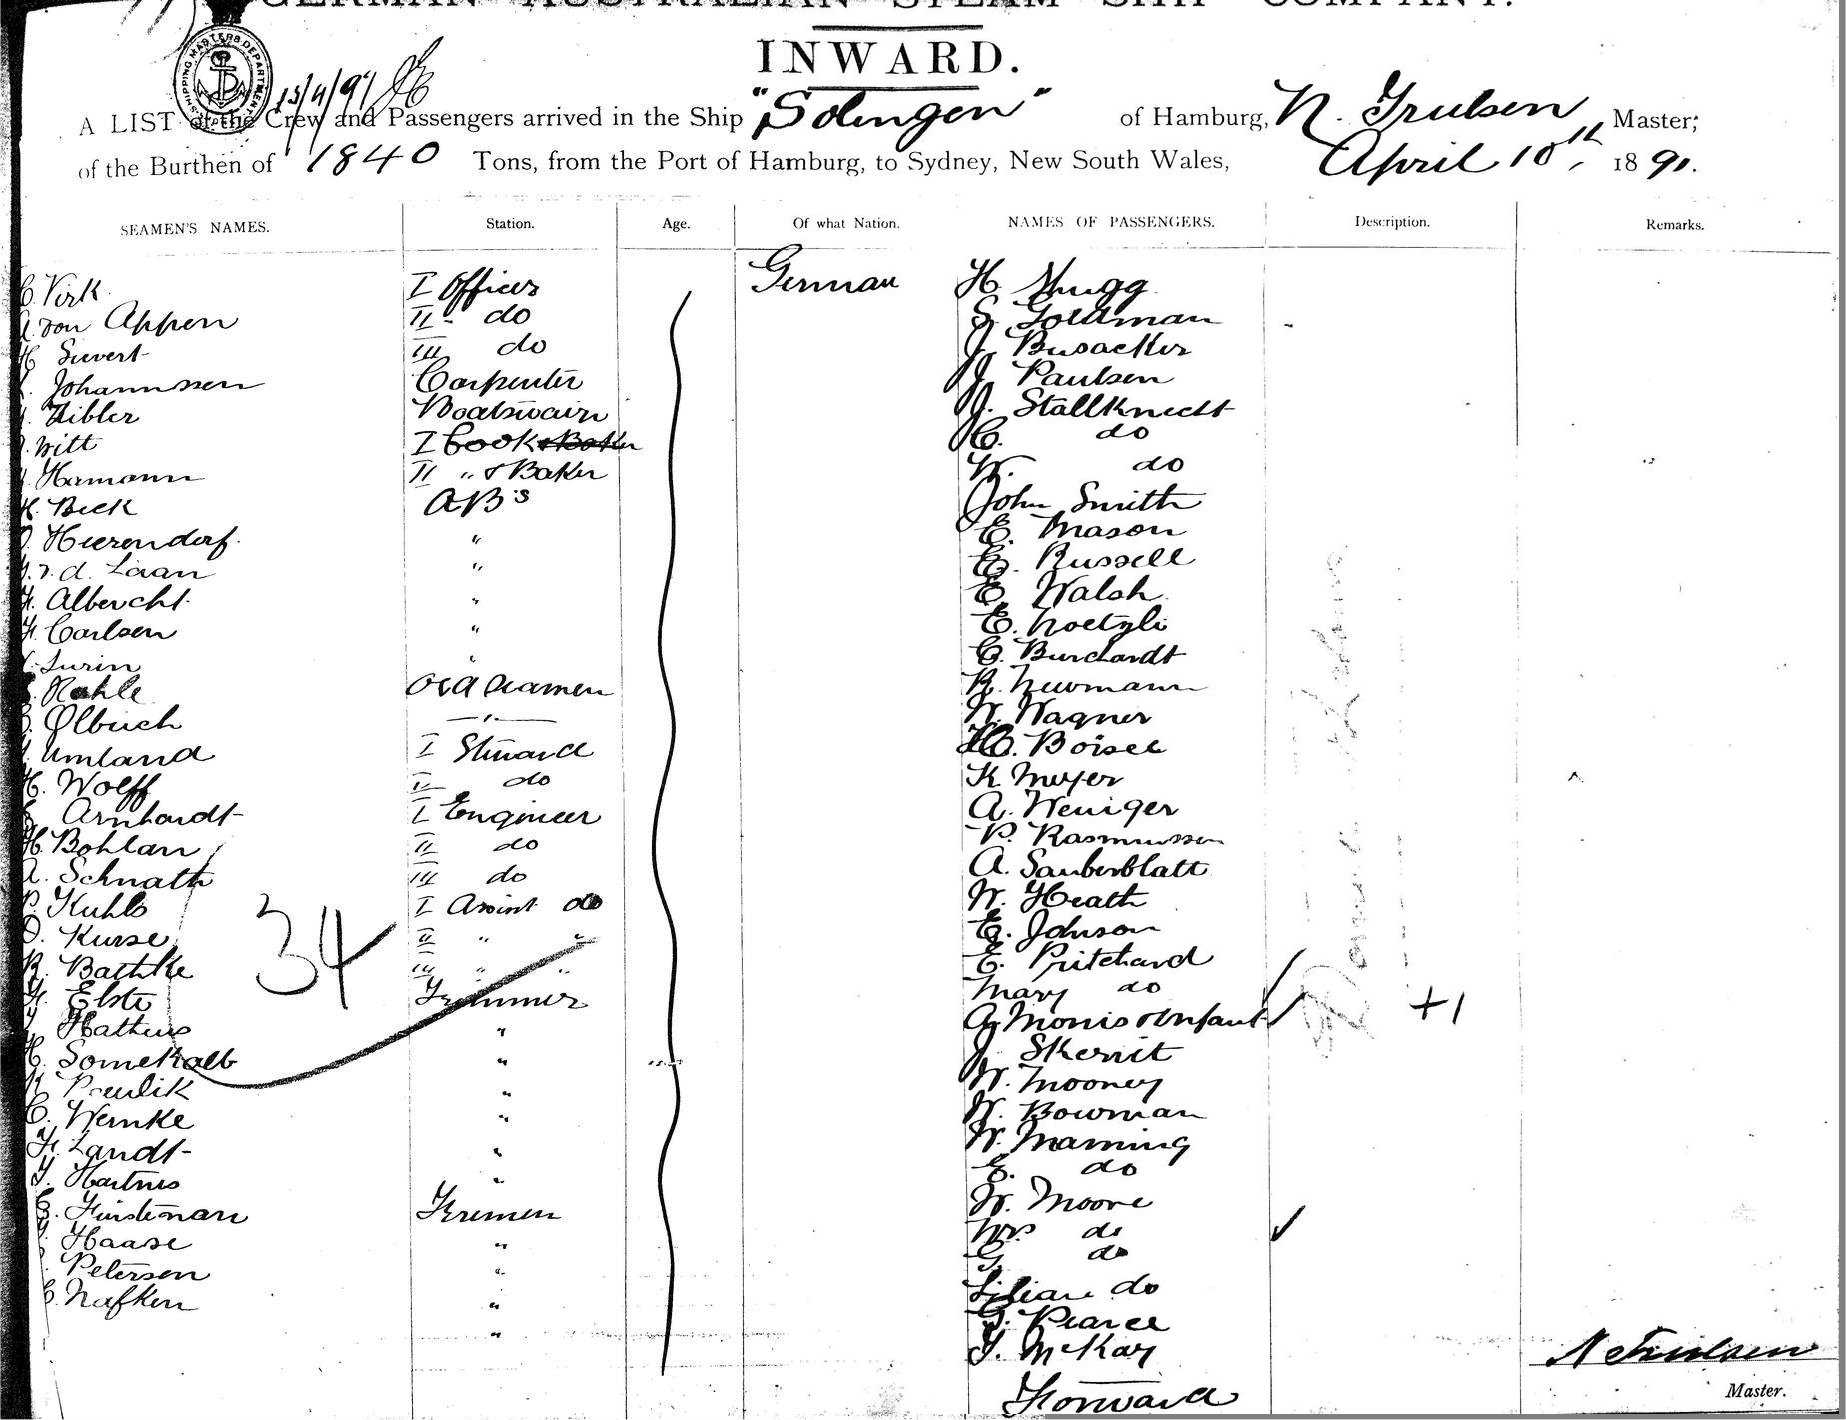 GERMAN AUSTRALIAN STEAM SHIP COMPANY.
INWARD.
SHIPPING MASTERS DEPARTMENT
A LIST of the Crew and Passengers arrived in the Ship "Solingen" of Hamburg, N. Trulsen Master;
of the Burthen of 1840 Tons, from the Port of Hamburg, to Sydney, New South Wales, April 10th, 1891.
SEAMEN'S NAMES. Station. Age. Of what Nation. NAMES OF PASSENGERS. Description. Remarks.
C. Virk I Officer German H.
von Appen II do S. Goldman
H Sievert III do J. Busacker
Johannssen Carpenter J. Paulsen
Zibler Boatswain J. Stallknecht
Witt I Cook C. do
Hamann II " & Baker W. do
H. Beck AB's John Smith
Heerendorf. " E. Mason
v. d. Laan " E. Russell
F. Albercht " E. Walsh
F. Carlsen " E. Noetzli
" E. Burchardt
Rahle Ord Seamen R. Newmann
Olbuch " W. Wagner
Umland I Steward H. Boisel
H. Wolff II do K Meyer
Arnhardt I Engineer A. Weniger
H. Bohlan II do P. Rasmussen
A. Schnath III do A. Sauberblatt
P. Kuhls I Assint do W. Heath
O. Kurse II " " E. Johnson
R. Bathke III " " E. Pritchard
34
F. Elste Trimmer Mary do
" A. Monis & Infant +1
H. Somekalb " J. Skerrit
" W. Mooney
C. Wernke " W. Bowman
F. Landt " W. Manning
" E. do
Firemen W. Moore
Haase " Mrs do
Petersen " G. do
" Lilian do
" G. Pearce
J. McKay
N Trulsen
Master.
Forward